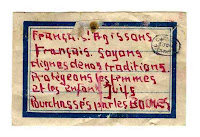 Français. Agissons
Français. Soyons
dignes de nos traditions
Protégeons les femmes
et les enfants Juifs
Pourchassés par les BOCHES